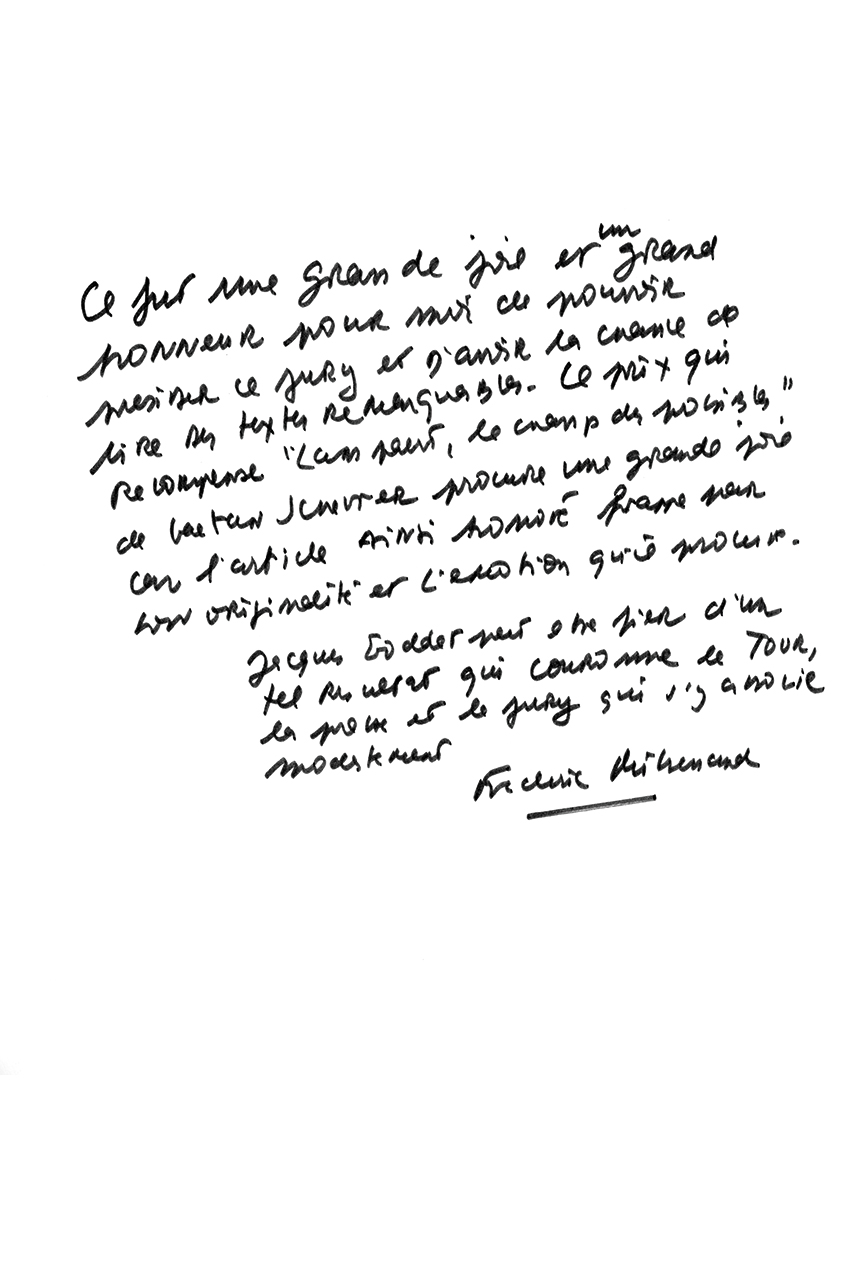 Ce fut une grande joie et un grand
honneur pour moi de pouvoir
présider ce jury et d'avoir la chance de
lire des textes remarquables. Ce prix qui
récompense "L'ampant, le champ des possibles"
de Gaetan Scherrer procure une grande joie
car l'article ainsi honoré frappe par
son originalité et l'émotion qu'il procure.
Jacques Goddet peut être fier d'un
tel résultat qui couronne le TOUR,
la presse et le jury qui s'y associe
modestement
Frédéric Mitterrand